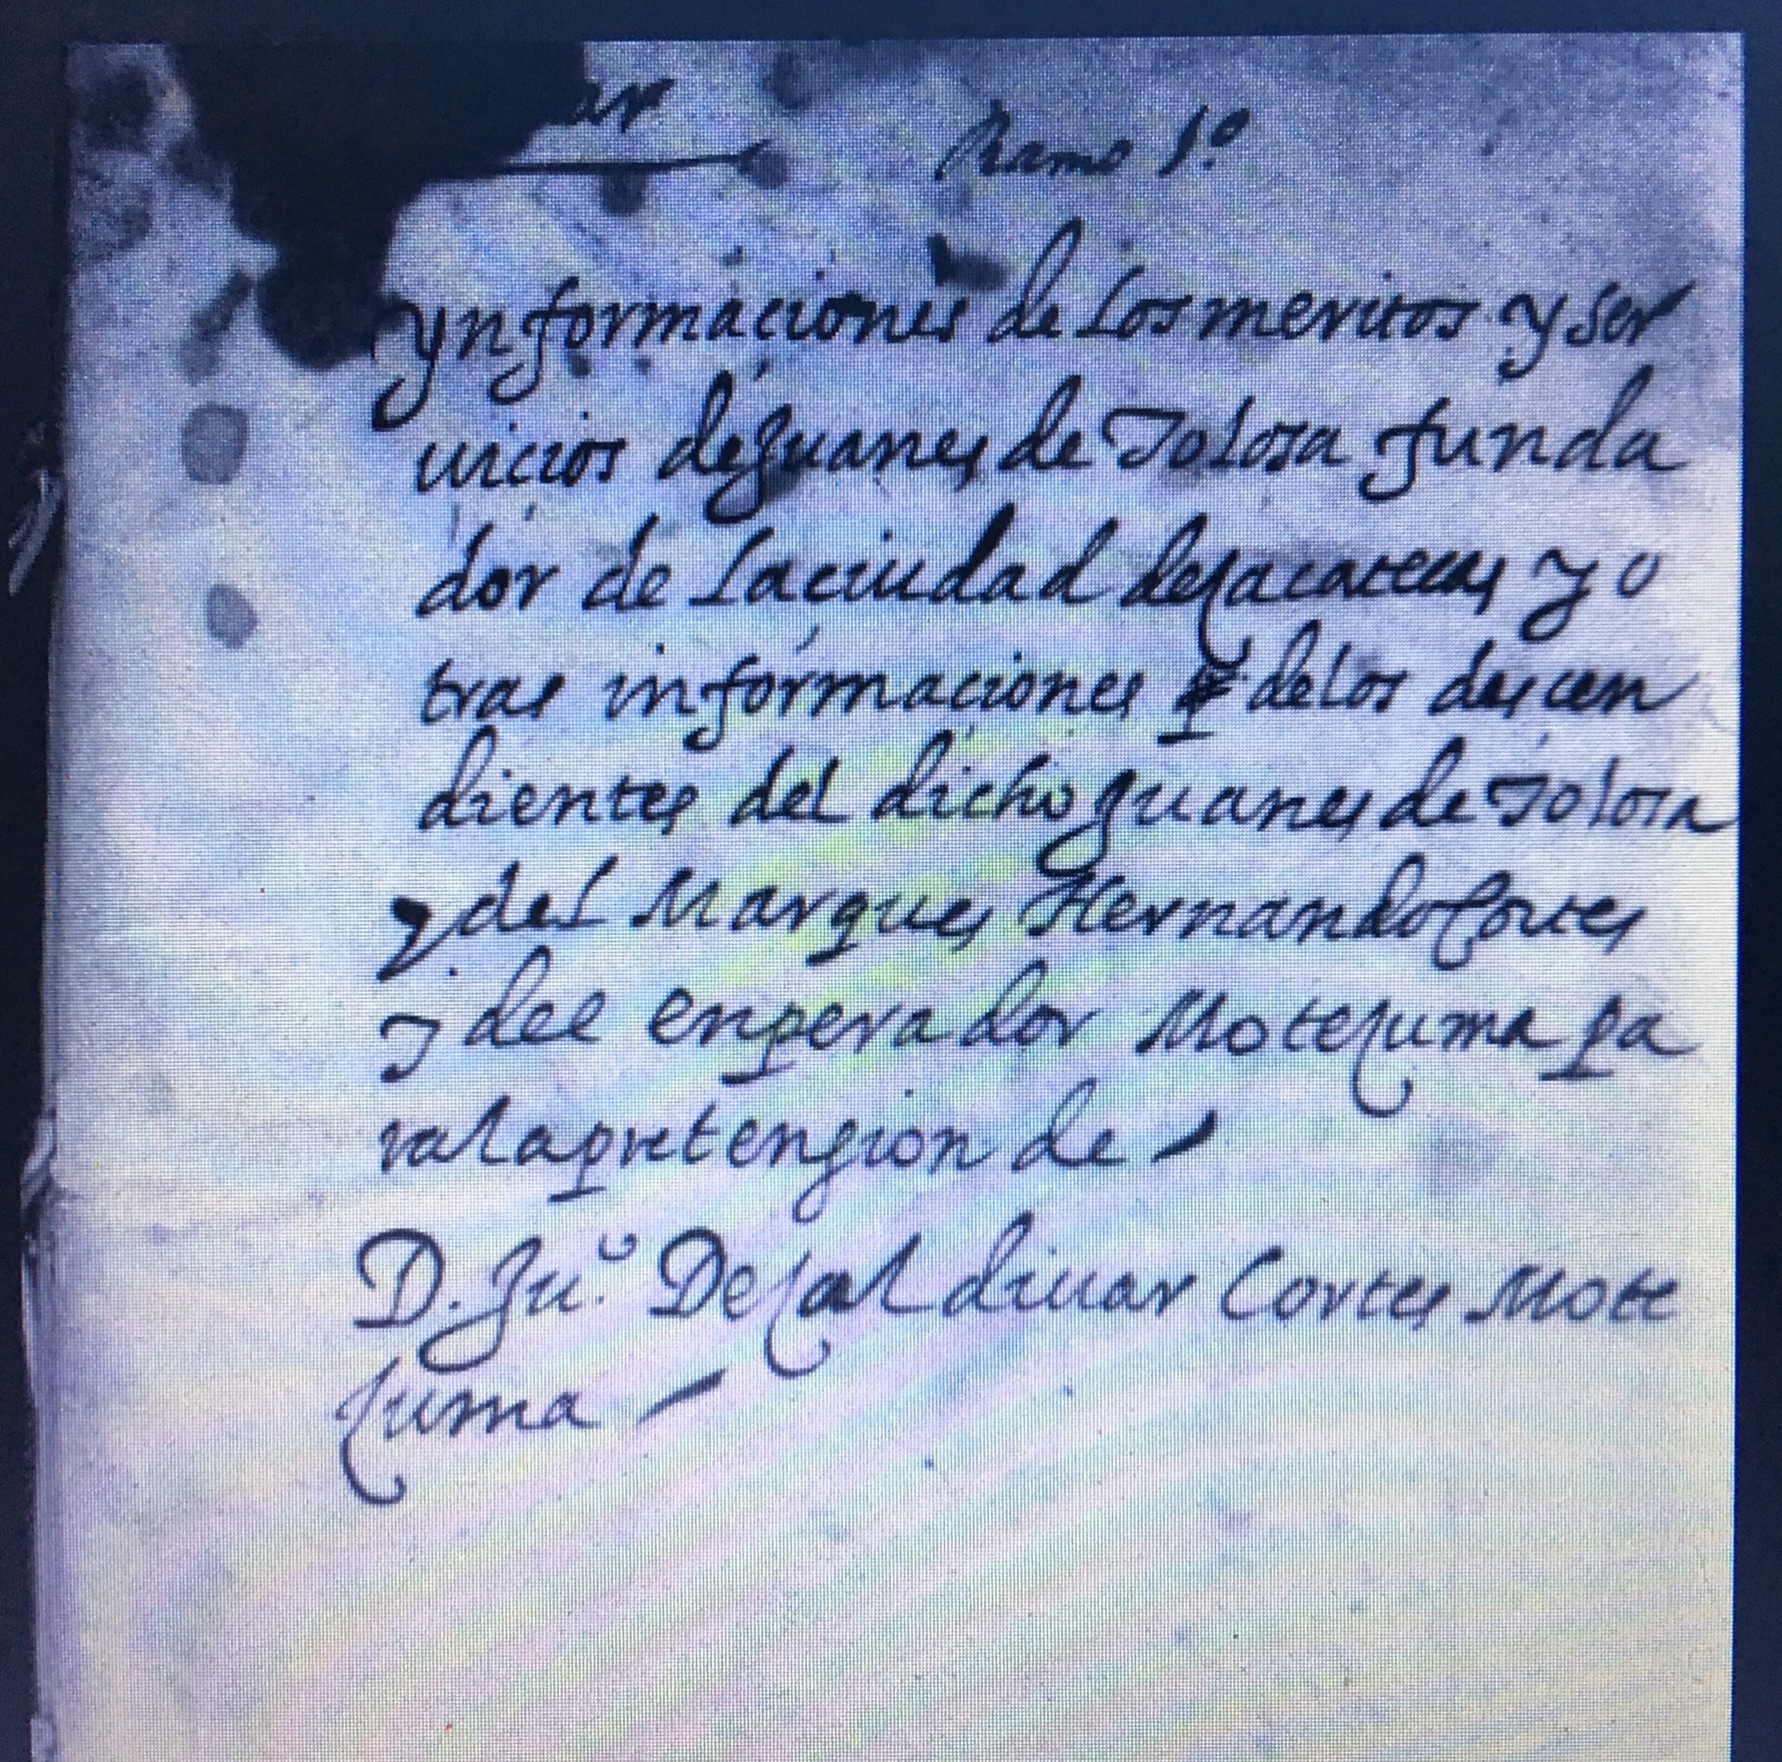 ar
Ramo 1.º
ynformaciones de los meritos y ser
uicios de juanes de Tolosa funda
dor de la ciudad de çacatecas y o
tras informaciones de los descen
dientes del dicho juanes de Tolosa
y del Marques Hernando Cortes
y del enperador Moteçuma pa
ra la pretension de
D. Juº. De çaldiuar Cortes Mote
çuma